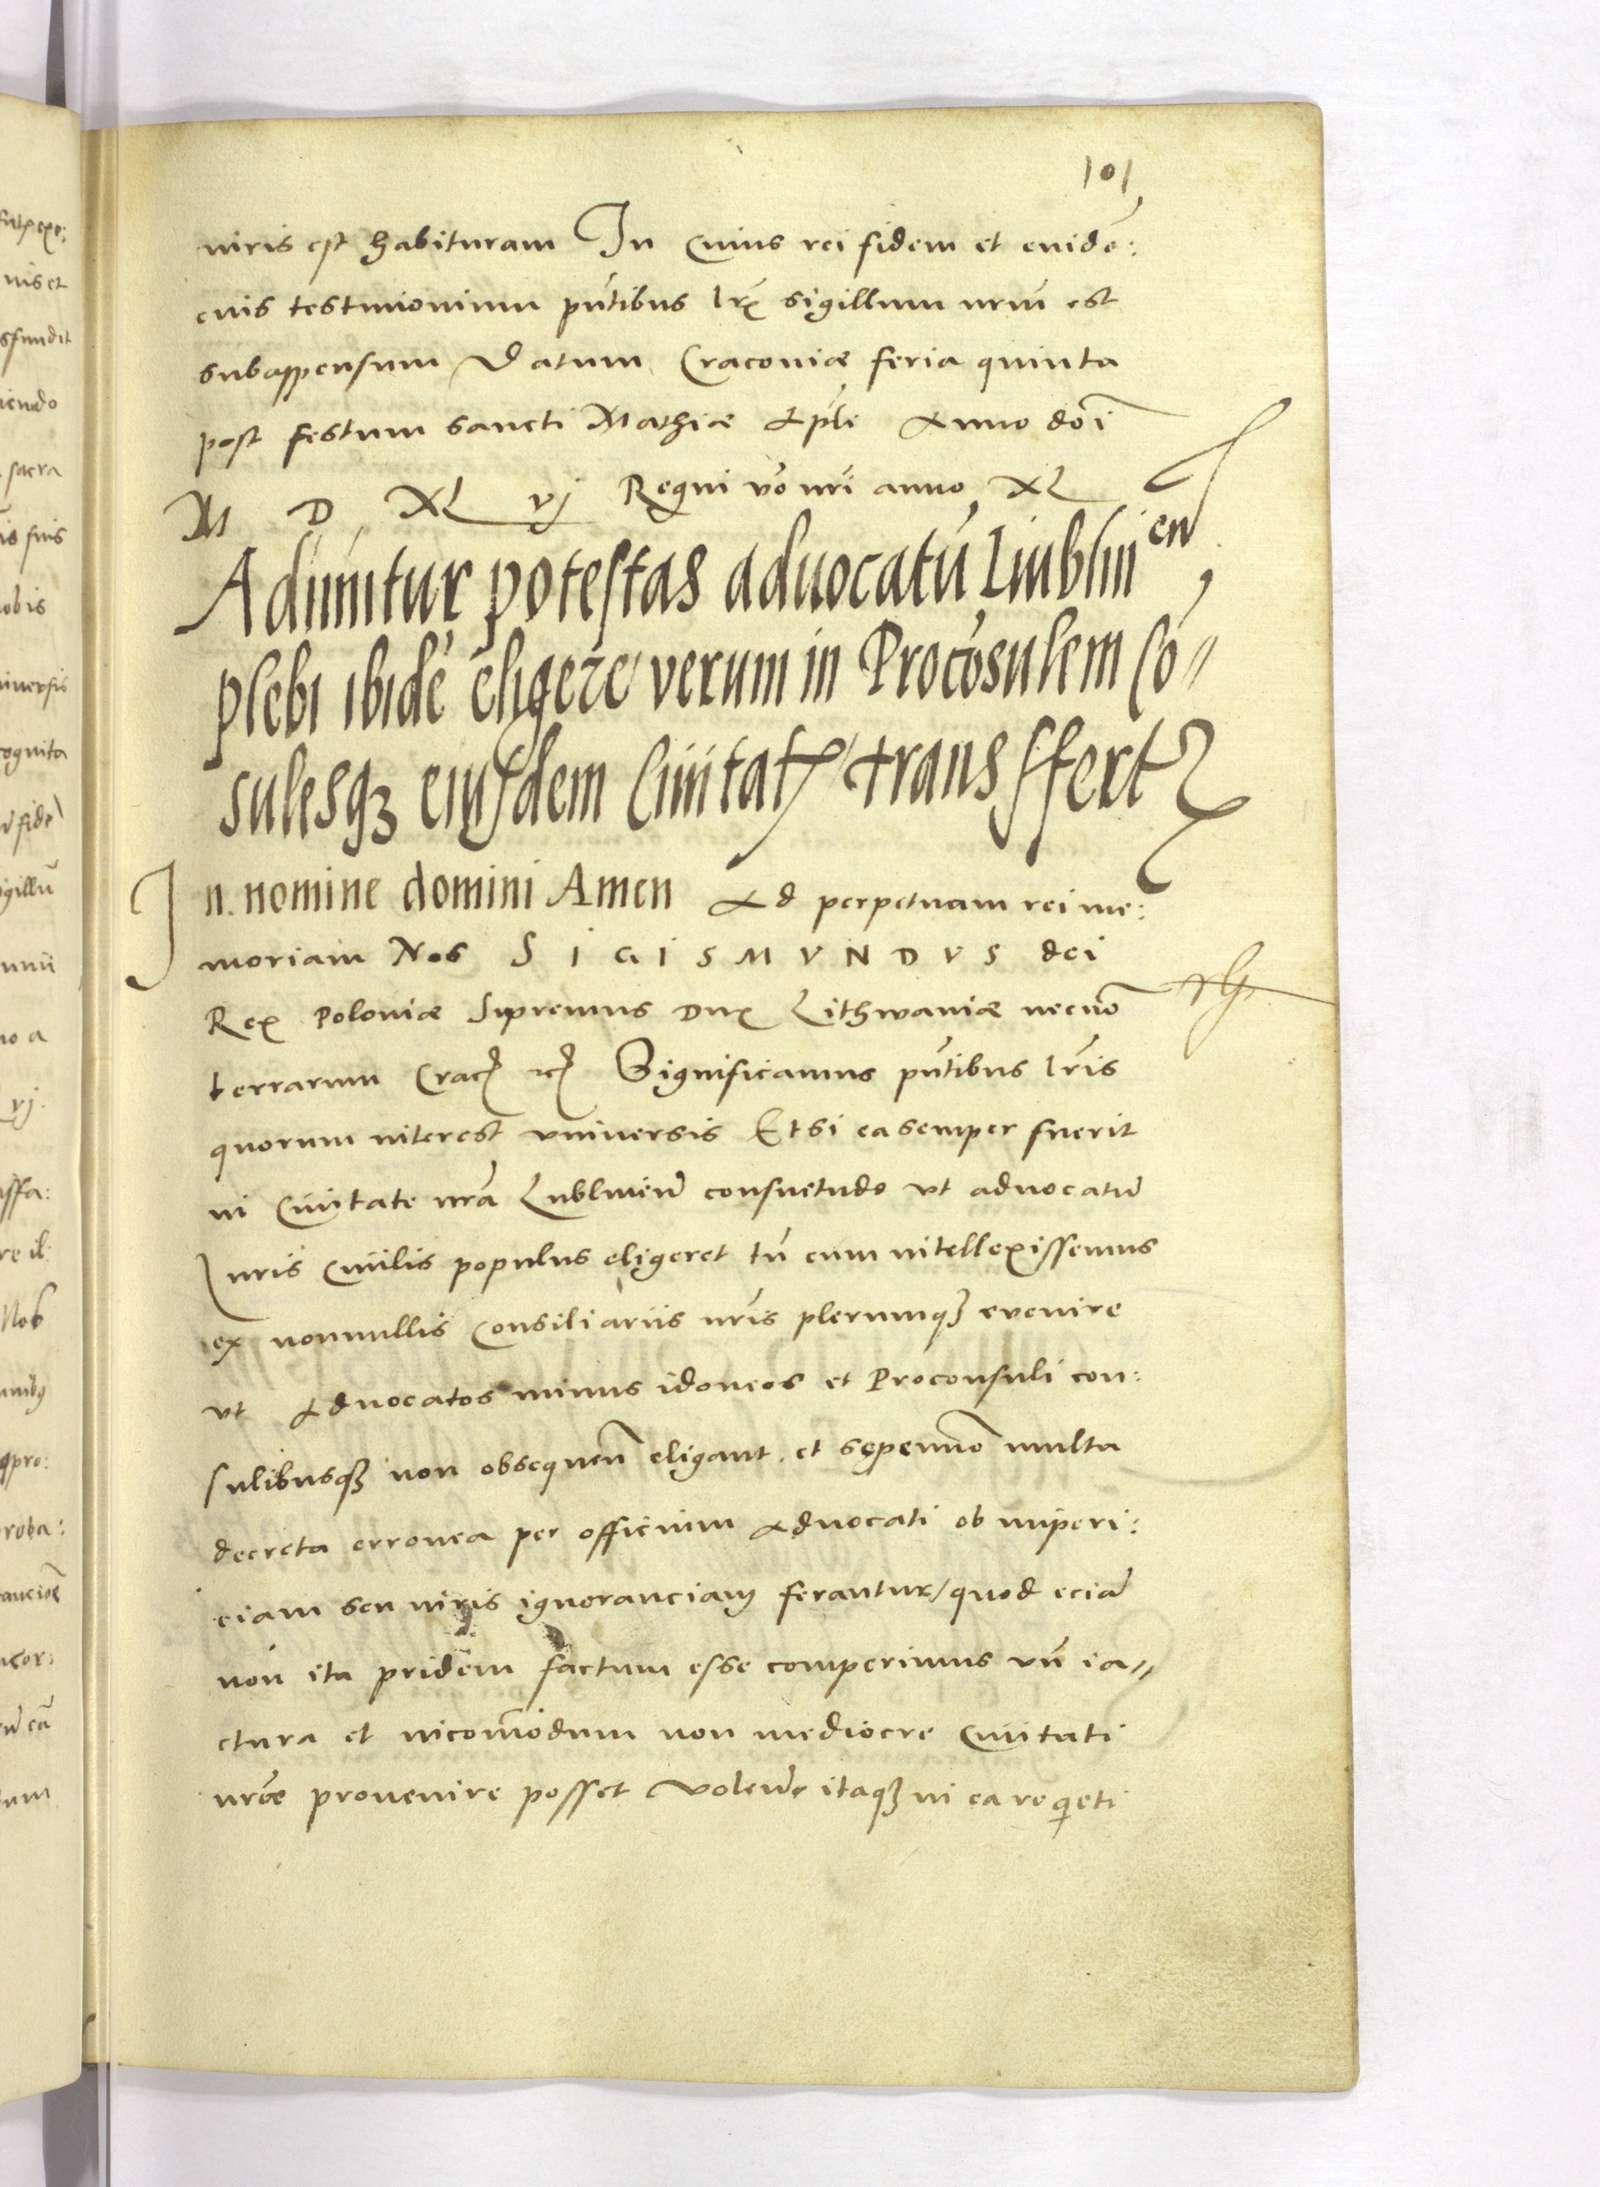 101
iuris est habituram In cuius rei fidem et euidē:
cius testimonium pn̄tibus lrīs sigillum nrūm est
subappensum Datum Cracoviæ feria quinta
post festum sancti Mathiæ Apl̄i Anno doi
M D XL vj Regni vō nrī anno XL
Adimitur potestas aduocatū Liublinen̄
plebi ibidē eligere verum in Procōsulem Cō//
sulesqꝫ eiusdem Ciuitatꝭ transffertꝛ
In nomine domini Amen Ad perpetuam rei me:
moriam Nos SIGISMVNDVS dei
Rex Poloniæ Supremus Dux Lithwaniæ necnō
terrarum Crac̄ ꝛc̄ Significamus pn̄tibus lrīs
quorum interest vniuersis Etsi ea semper fuerit
in Ciuitate nrā Lublinen̄ consuetudo vt aduocatū
Iuris Ciuilis populus eligeret tn̄ cum intellexissemus
ex nonnullis Consiliariis nrīs plerumqꝫ evenire
vt Aduocatos minus idoneos et Proconsuli con:
sulibusqꝫ non obsequen̄ eligant et sępenūo multa
decreta erronea per officium Aduocati ob imperi:
ciam seu iuris ignoranciam ferantur/ quod eciā
non ita pridem factum esse comperimus vn̄ ia//
ctura et incom̄odum non mediocre Ciuitati
nrēæ prouenire posset Volen̄ itaqꝫ in ea re qieti